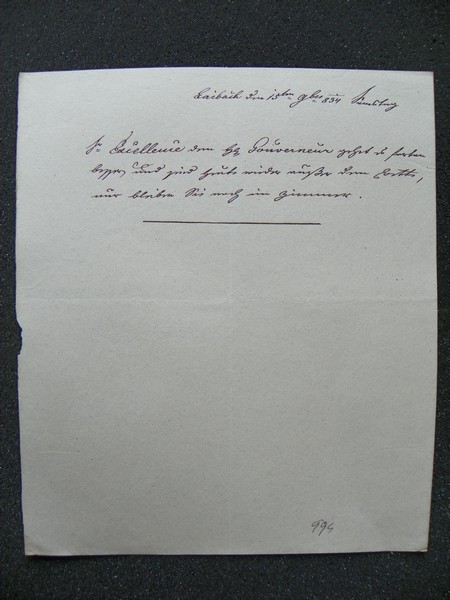 Laibach den 15ten 9ber 834 Samstag
Sr Excellence dem H Gouverneur gehet es
besser und sind heute wieder außer dem Bette,
nur bleiben Sie noch im Zimmer.
994